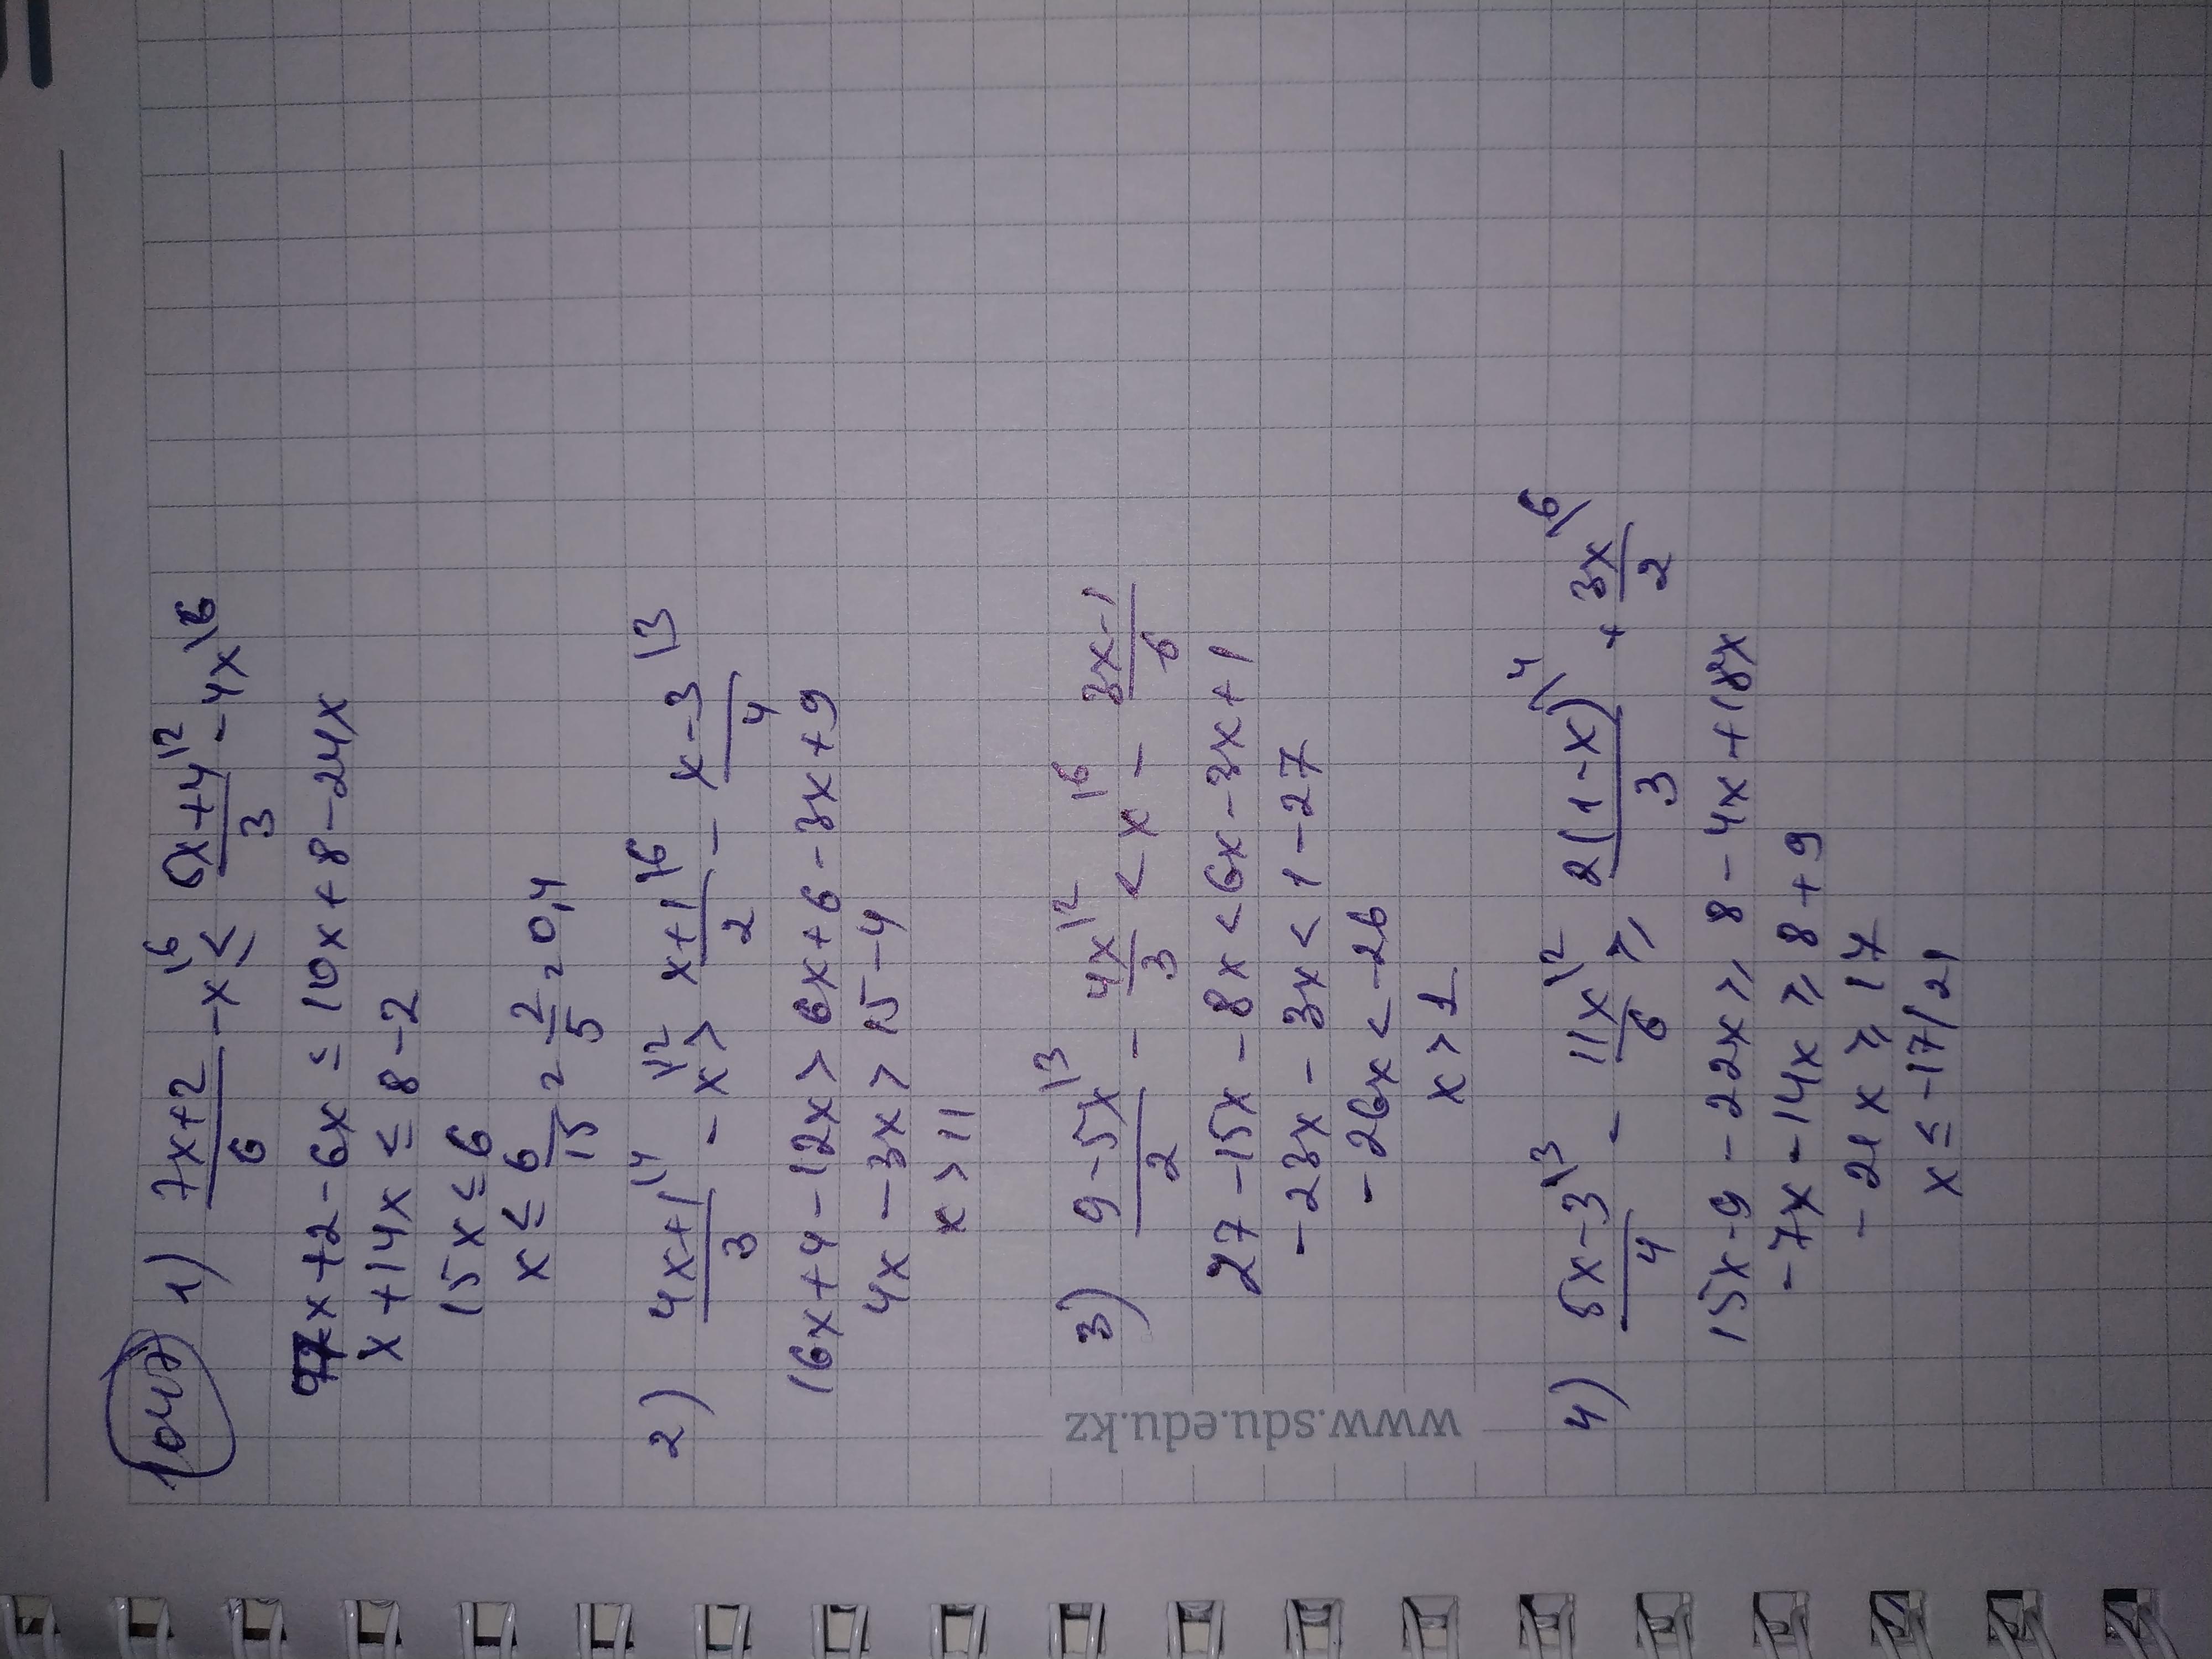 1047
1) 7x+2/6 - x\6 ≤ 5x+4\2/3 - 4x\6
7x+2-6x ≤ 10x+8-24x
x+14x ≤ 8-2
15x ≤ 6
x ≤ 6/15 = 2/5 = 0,4
2) 4x+1\4/3 - x\12 > x+1\6/2 - x-3/4 \3
16x+4-12x > 6x+6-3x+9
4x-3x > 15-4
x > 11
3) 9-5x\3/2 - 4x\2/3 < x\6 - 3x-1/6
27-15x-8x < 6x-3x+1
-23x-3x < 1-27
-26x < -26
x > 1
4) 5x-3\3/4 - 11x\2/6 ≥ 2(1-x)\4/3 + 3x\6/2
15x-9-22x ≥ 8-4x+18x
-7x-14x ≥ 8+9
-21x ≥ 17
x ≤ -17/21
www.sdu.edu.kz